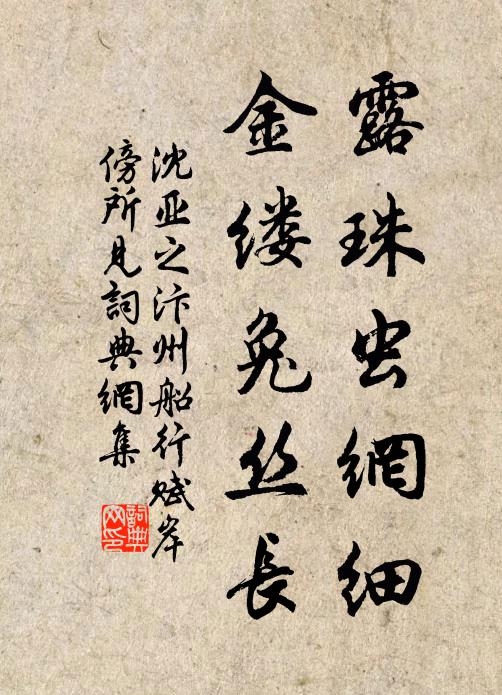 露珠虫網细
金缕兔丝長
沈亚之汴州船行赋岸
傍所見詞典網集
詞典網印